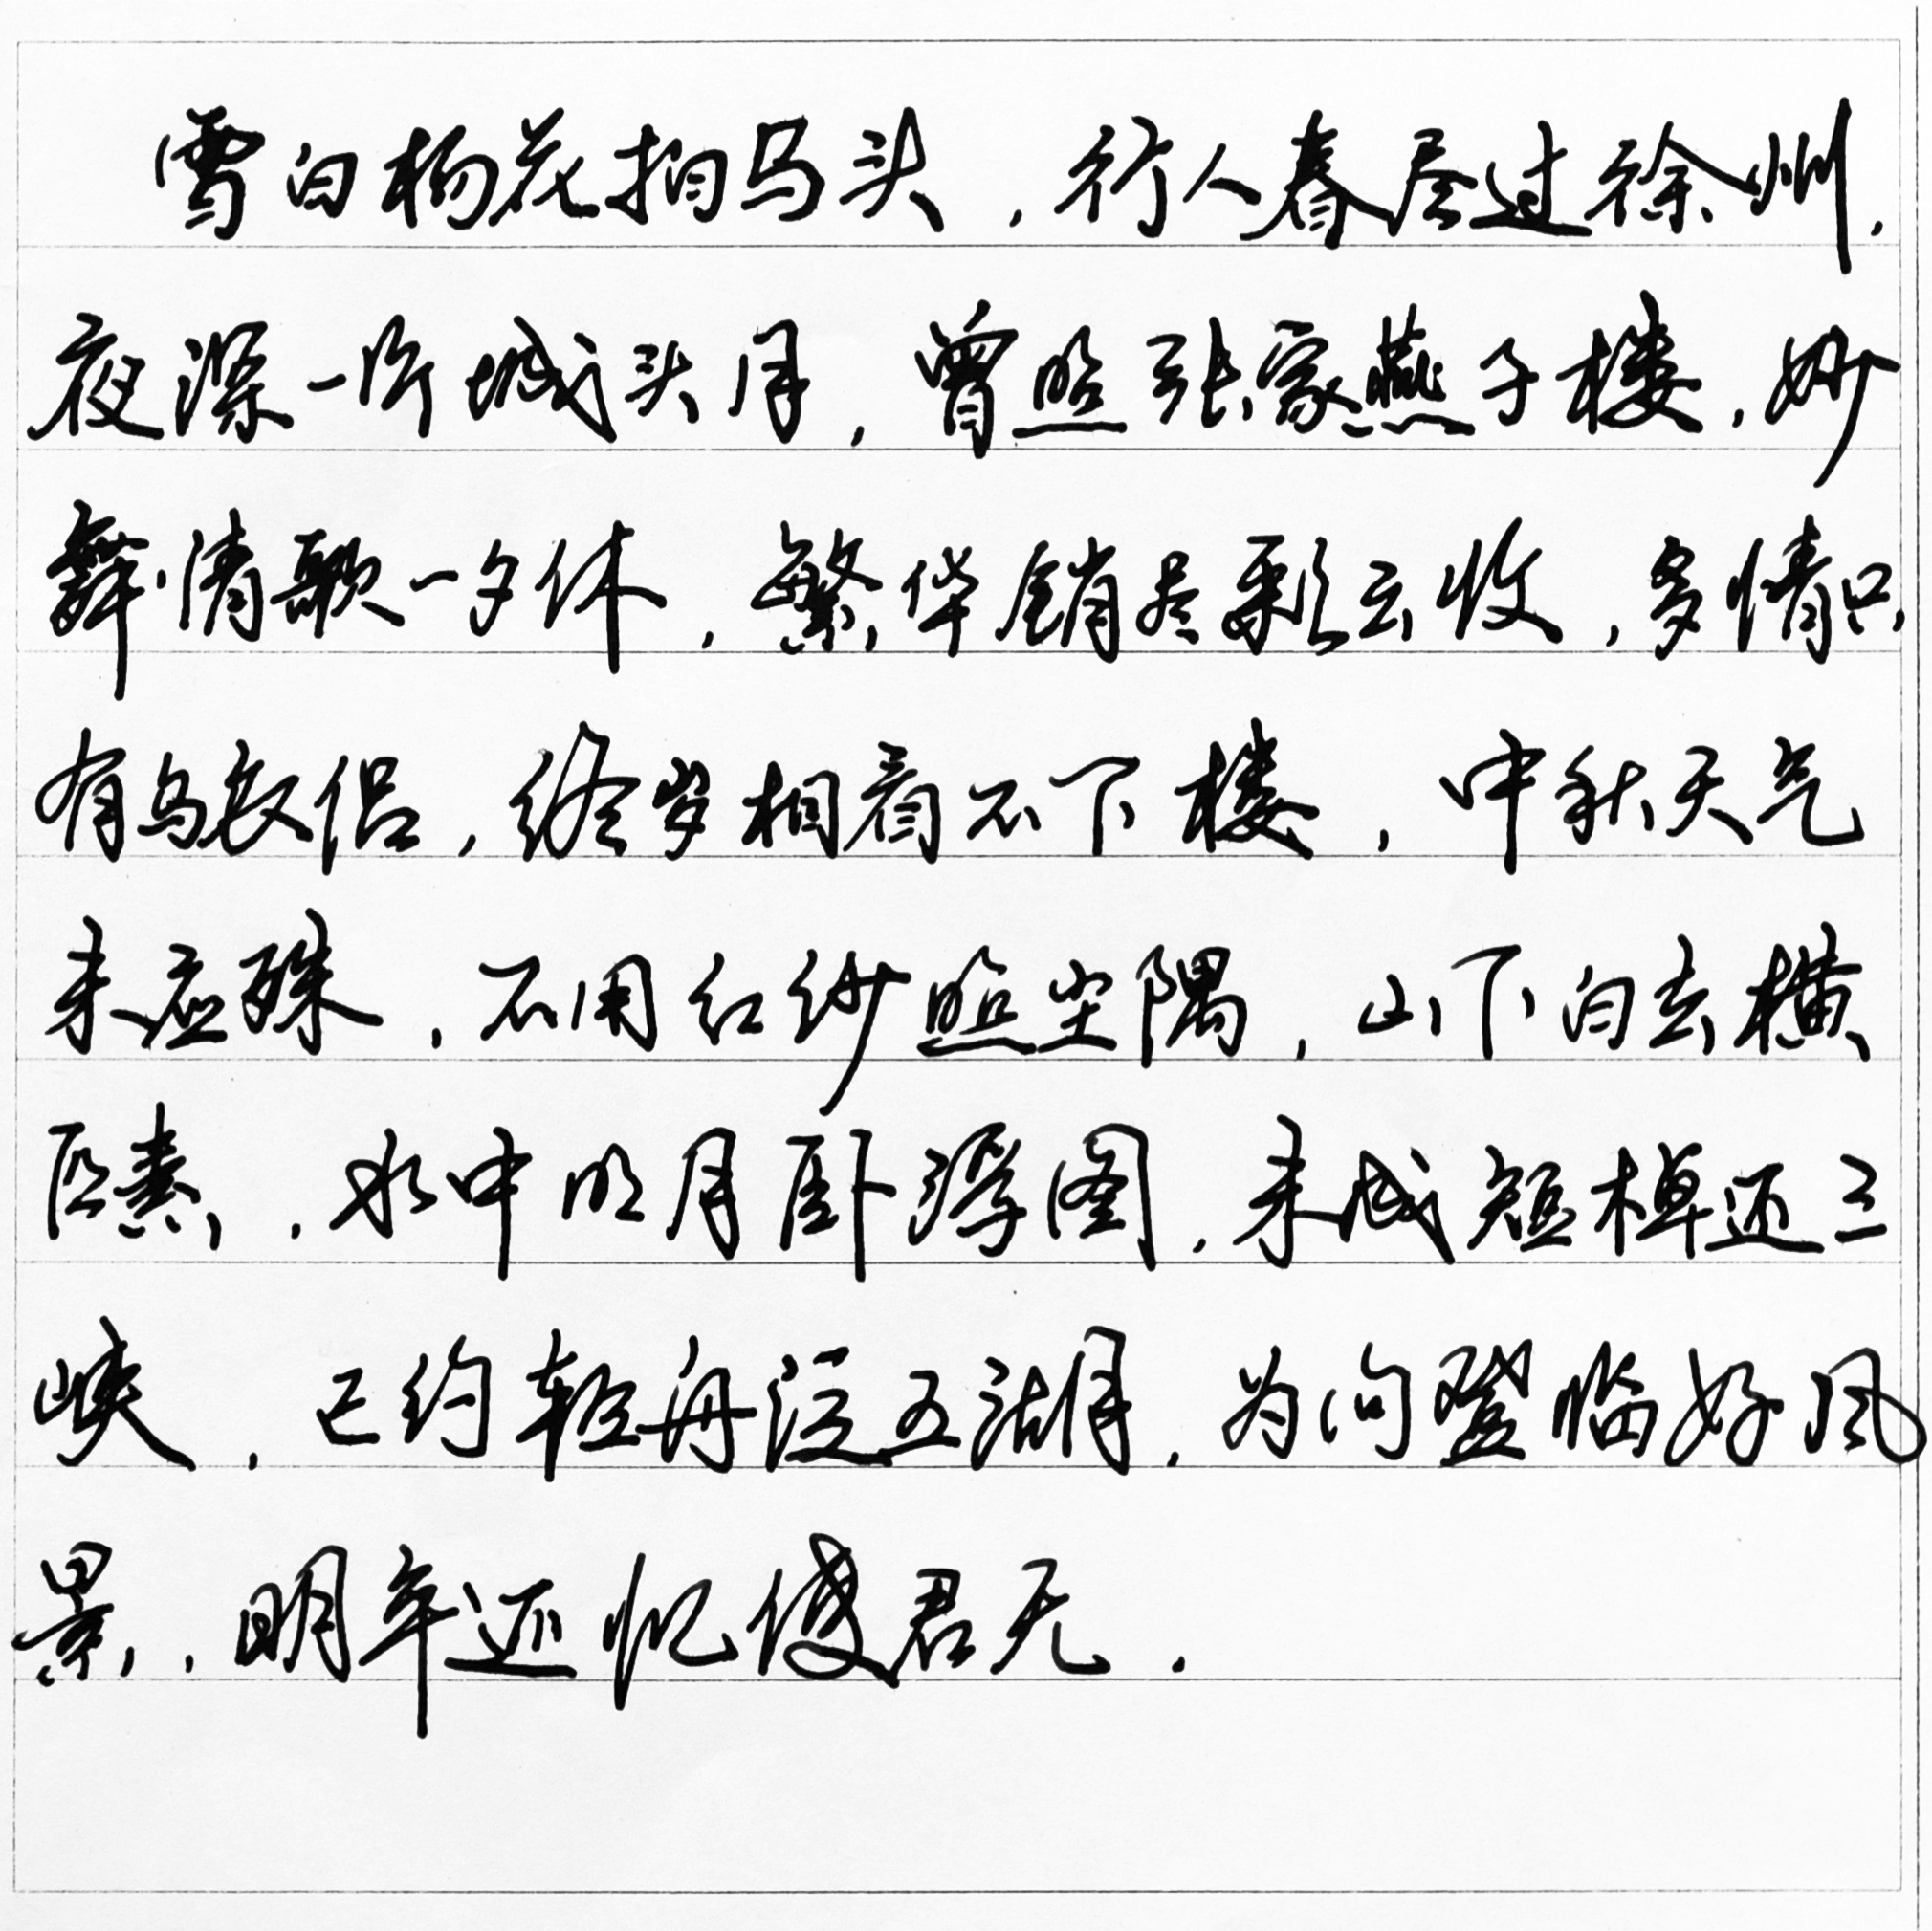 雪白杨花拍马头，行人春尽过徐州，
夜深一片城头月，曾照张家燕子楼，妙
舞情歌一夕休，繁华销尽彩云收，多情只
有乌衣侣，终岁相看不下楼，中秋天气
未应殊，不用红纱照坐隅，山下白云横
匹素，水中明月卧浮图，未成短棹还三
峡，已约轻舟泛五湖，为问登临好风
景，明年还忆使君无。